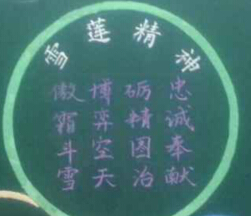 雪莲精神
忠诚奉献
砺精图治
博弈空天
傲霜斗雪